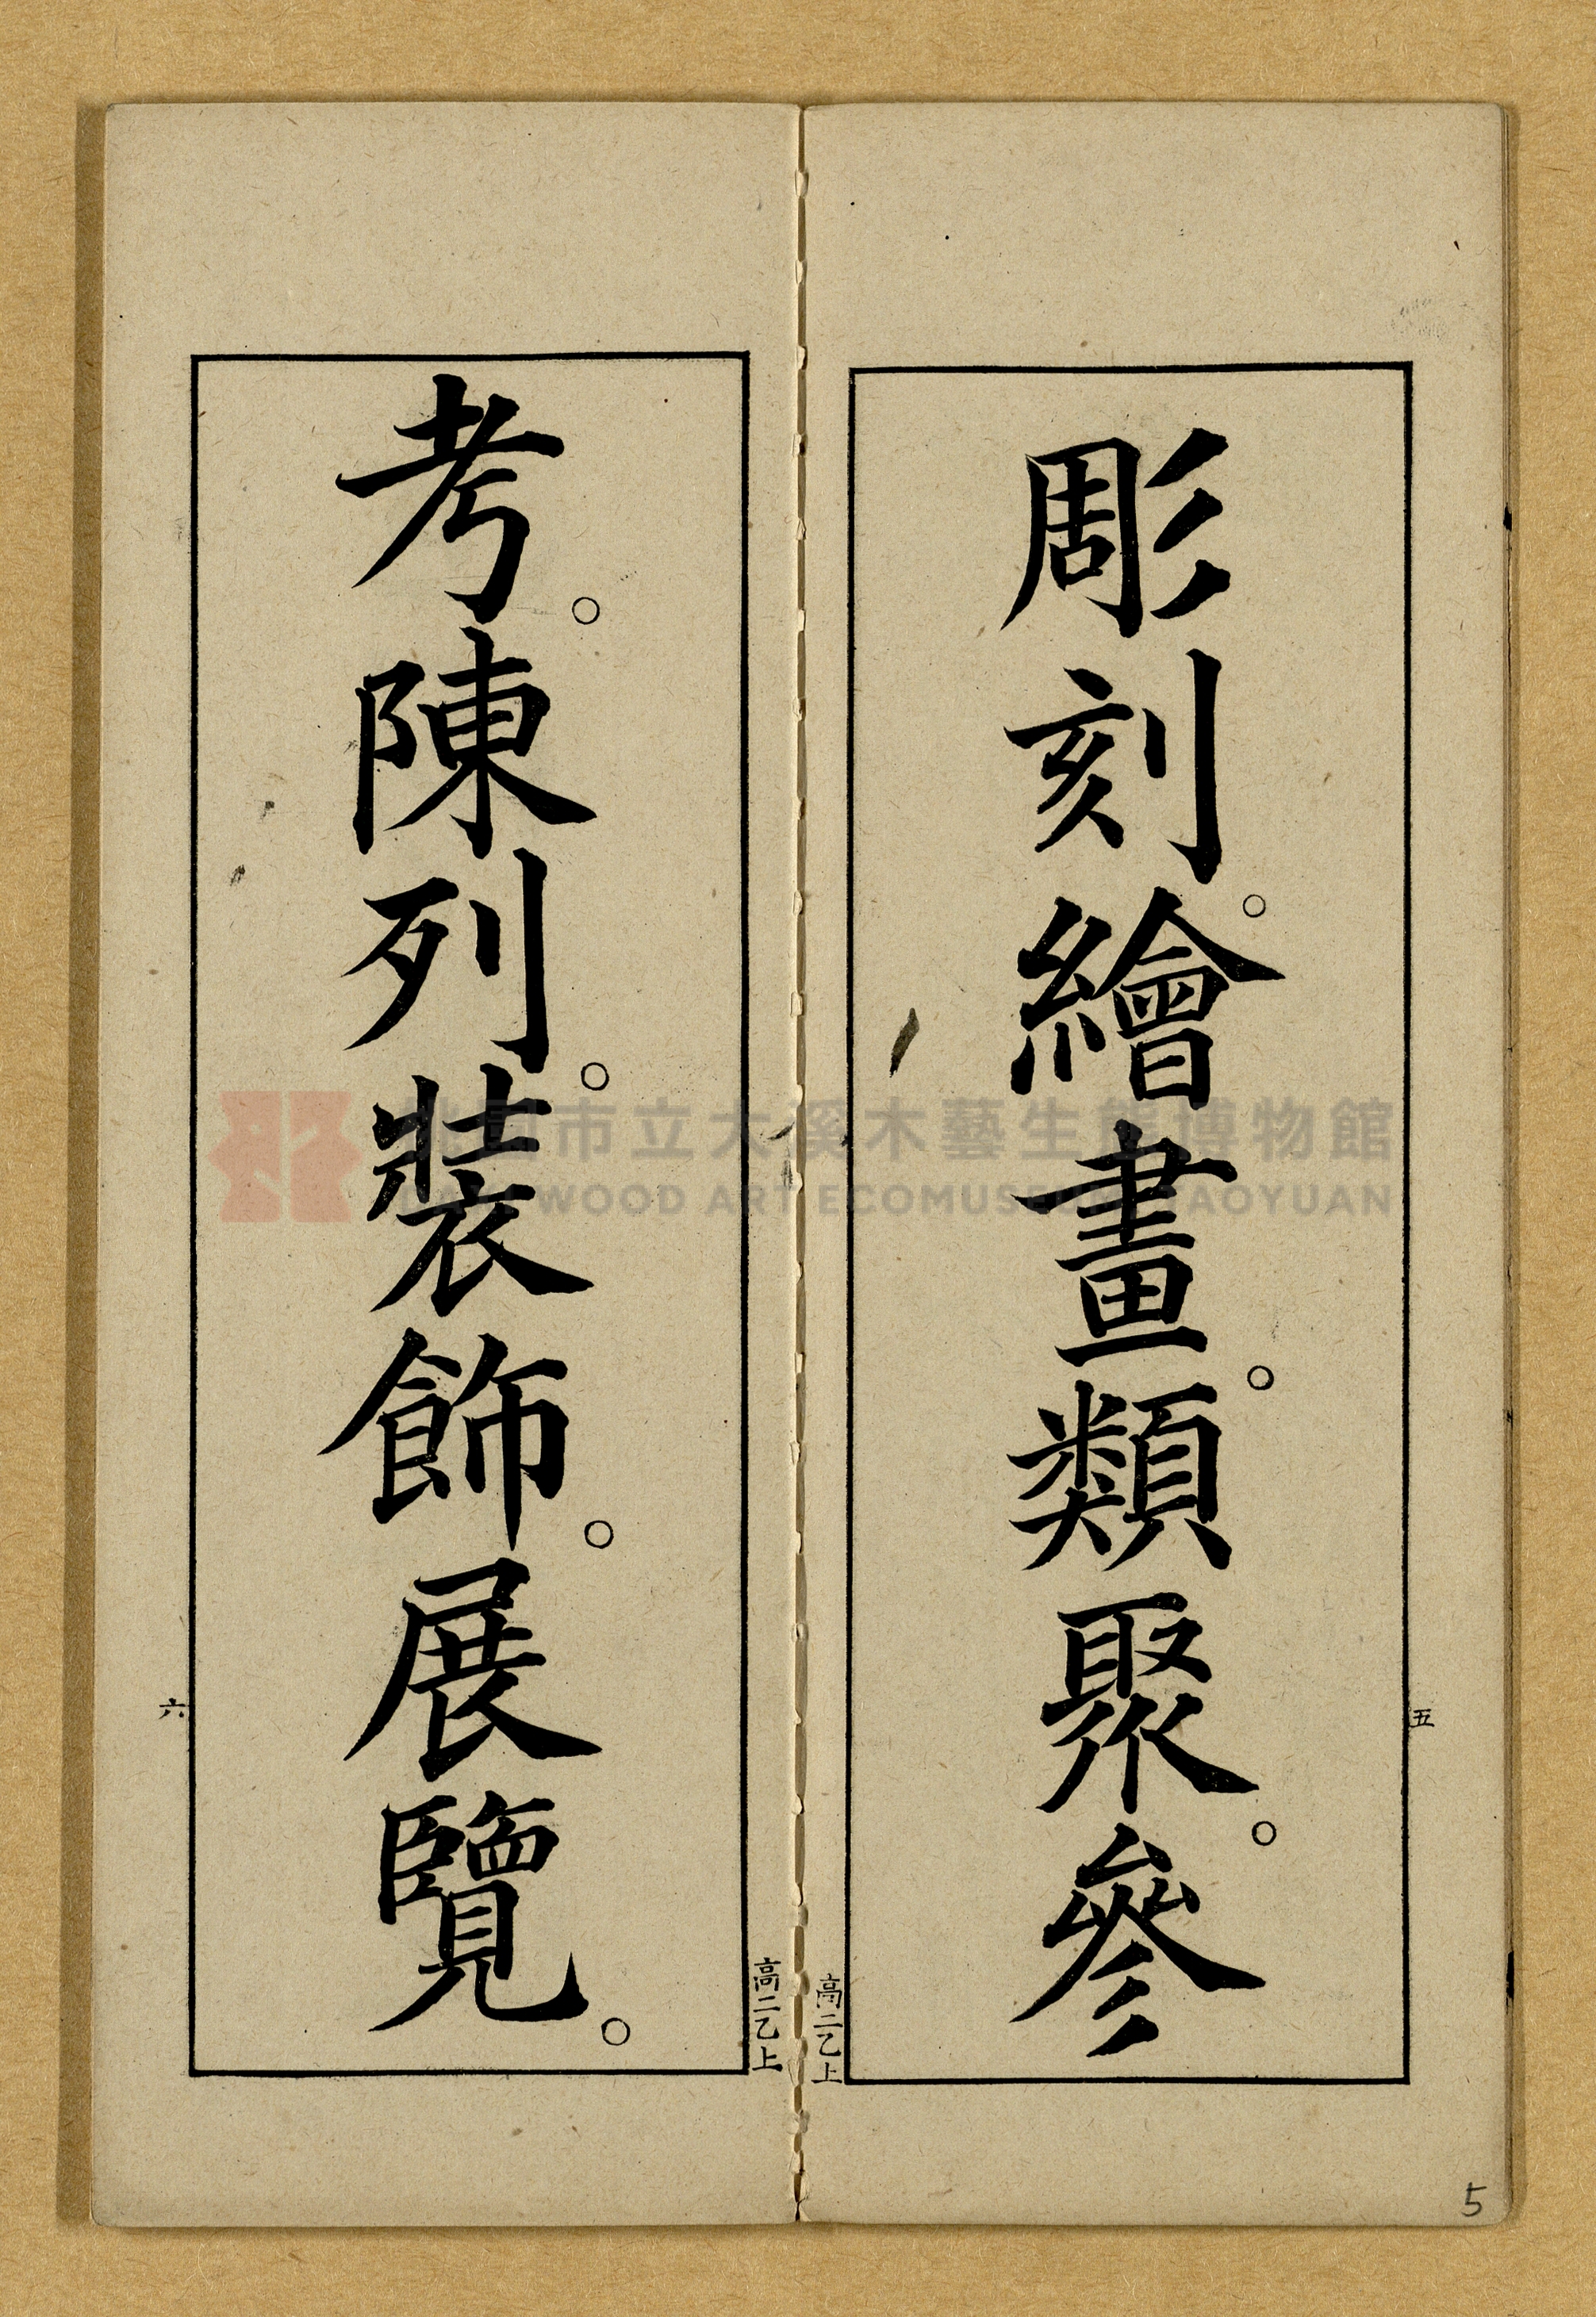 彫刻。繪畫。類聚。參
五
高二乙上
考。陳列。裝飾。展覽。
六
高二乙上
5
市立大溪木藝生態博物館
WOOD ART ECOMUSEUM TAOYUAN